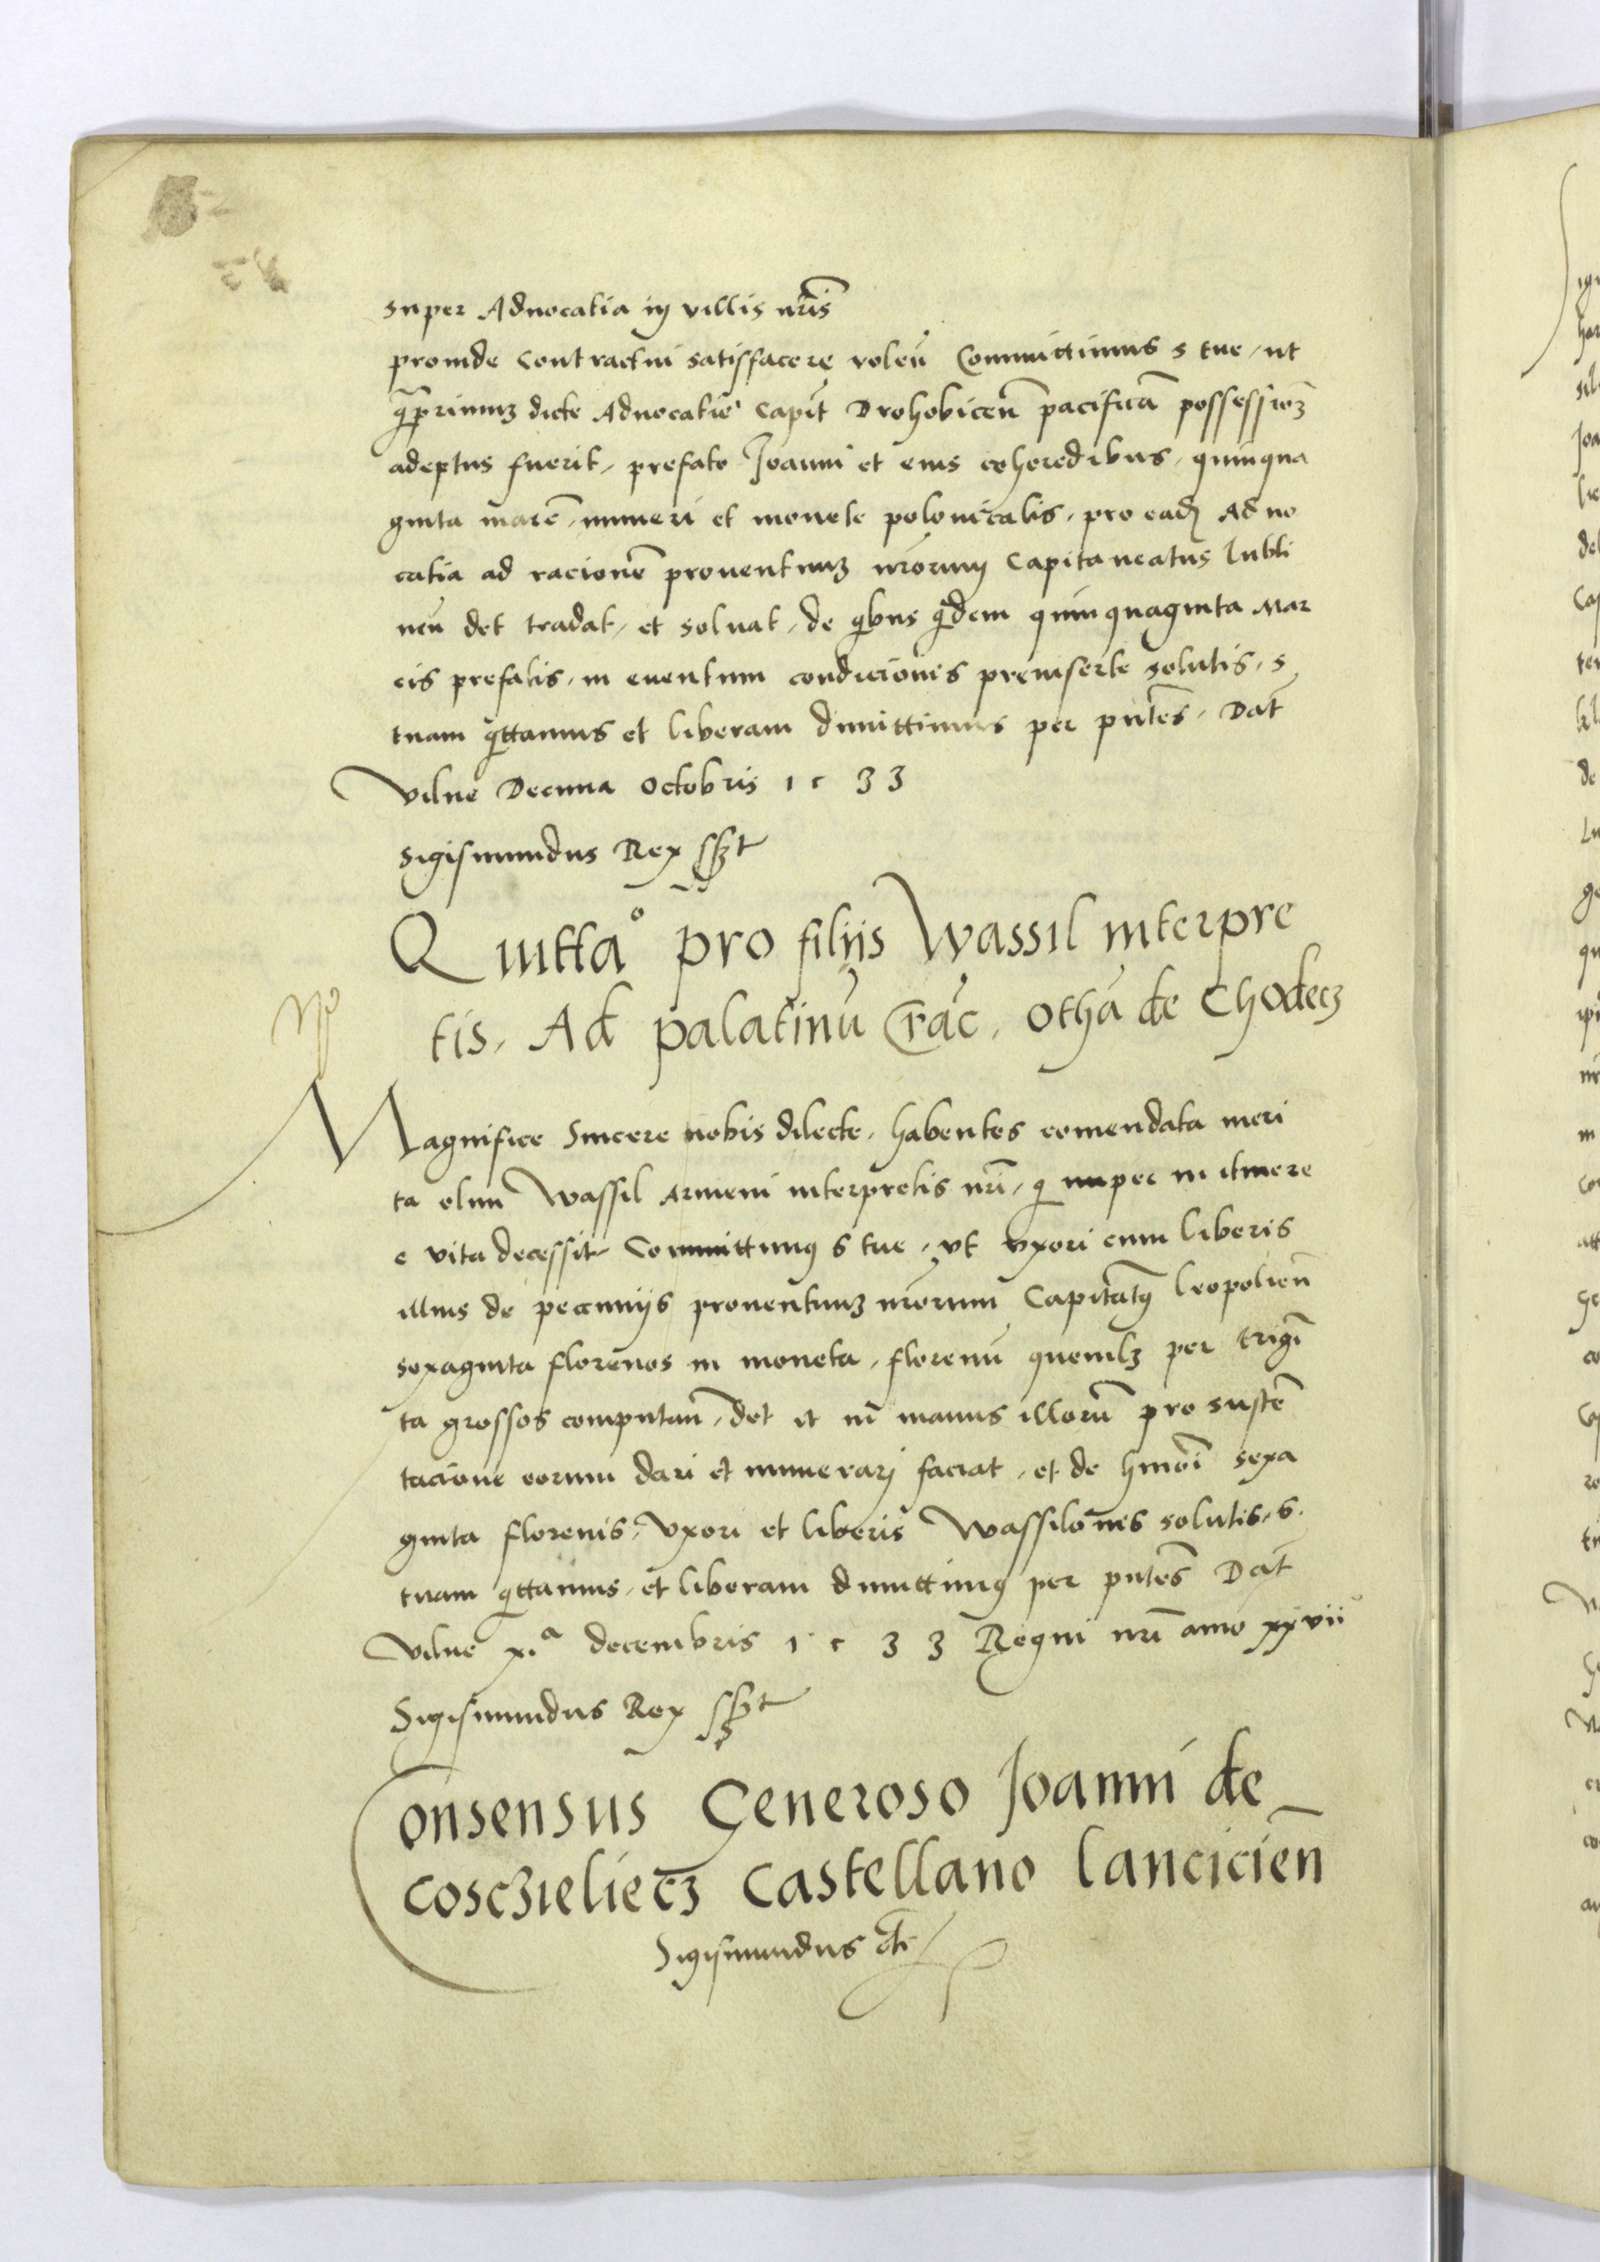 super Aduocatia in villis nr̃is
proinde contractui satisfacere volen̄ Committimus s tue, ut
q̄primuȝ dicte Aduocatie Capit̄ Drohobicen̄ pacificā possessioēȝ
adeptus fuerit, prefato Joanni et eius coheredibus, quinqua
ginta marc̄, numeri et monete polonicalis, pro eadȝ Aduo
catia ad racionē prouentuuȝ nr̄orum Capitaneatus lubli
nen̄ det tradat, et soluat, de qibus qidem quinquaginta Mar
cis prefatis, in euentum condicionis preinserte solutis, s
tuam qittamus et liberam dimittimus per pn̄tes, Dat̄
Vilne Decima octobris 1 5 33
Sigismundus Rex sszt
Quitta° pro filiis Wassil interpre
tis, Ad palatinū Crac̄, Othā de Chodecȝ
Magnifice Sincere nobis dilecte, habentes comendata meri
ta olim Wassil Armeni interpretis nr̄i, qi nuper in itinere
e vita decessit Committimus s tue, vt vxori cum liberis
illius de pecuniis prouentuuȝ nr̄orum Capitatꝰ leopolien̄
sexaginta florenos in moneta, florenū quemlȝ per trigī
ta grossos computan̄, det et in manus illorū pro sustē
tacione eorum dari et numerari faciat, et de hmōi sexa
ginta florenis, vxori et liberis Wassilonis solutis, s.
tuam qittamus, et liberam dimittimꝰ per pn̄tes Dat̄
Vilne xiᵃ decembris 1 5 3 3 Regni nr̄i anno xxvii°
Sigismundus Rex sszt
Consensus Generoso Joanni de
Cosczieliecȝ Castellano lancicien̄
Sigismundus etc